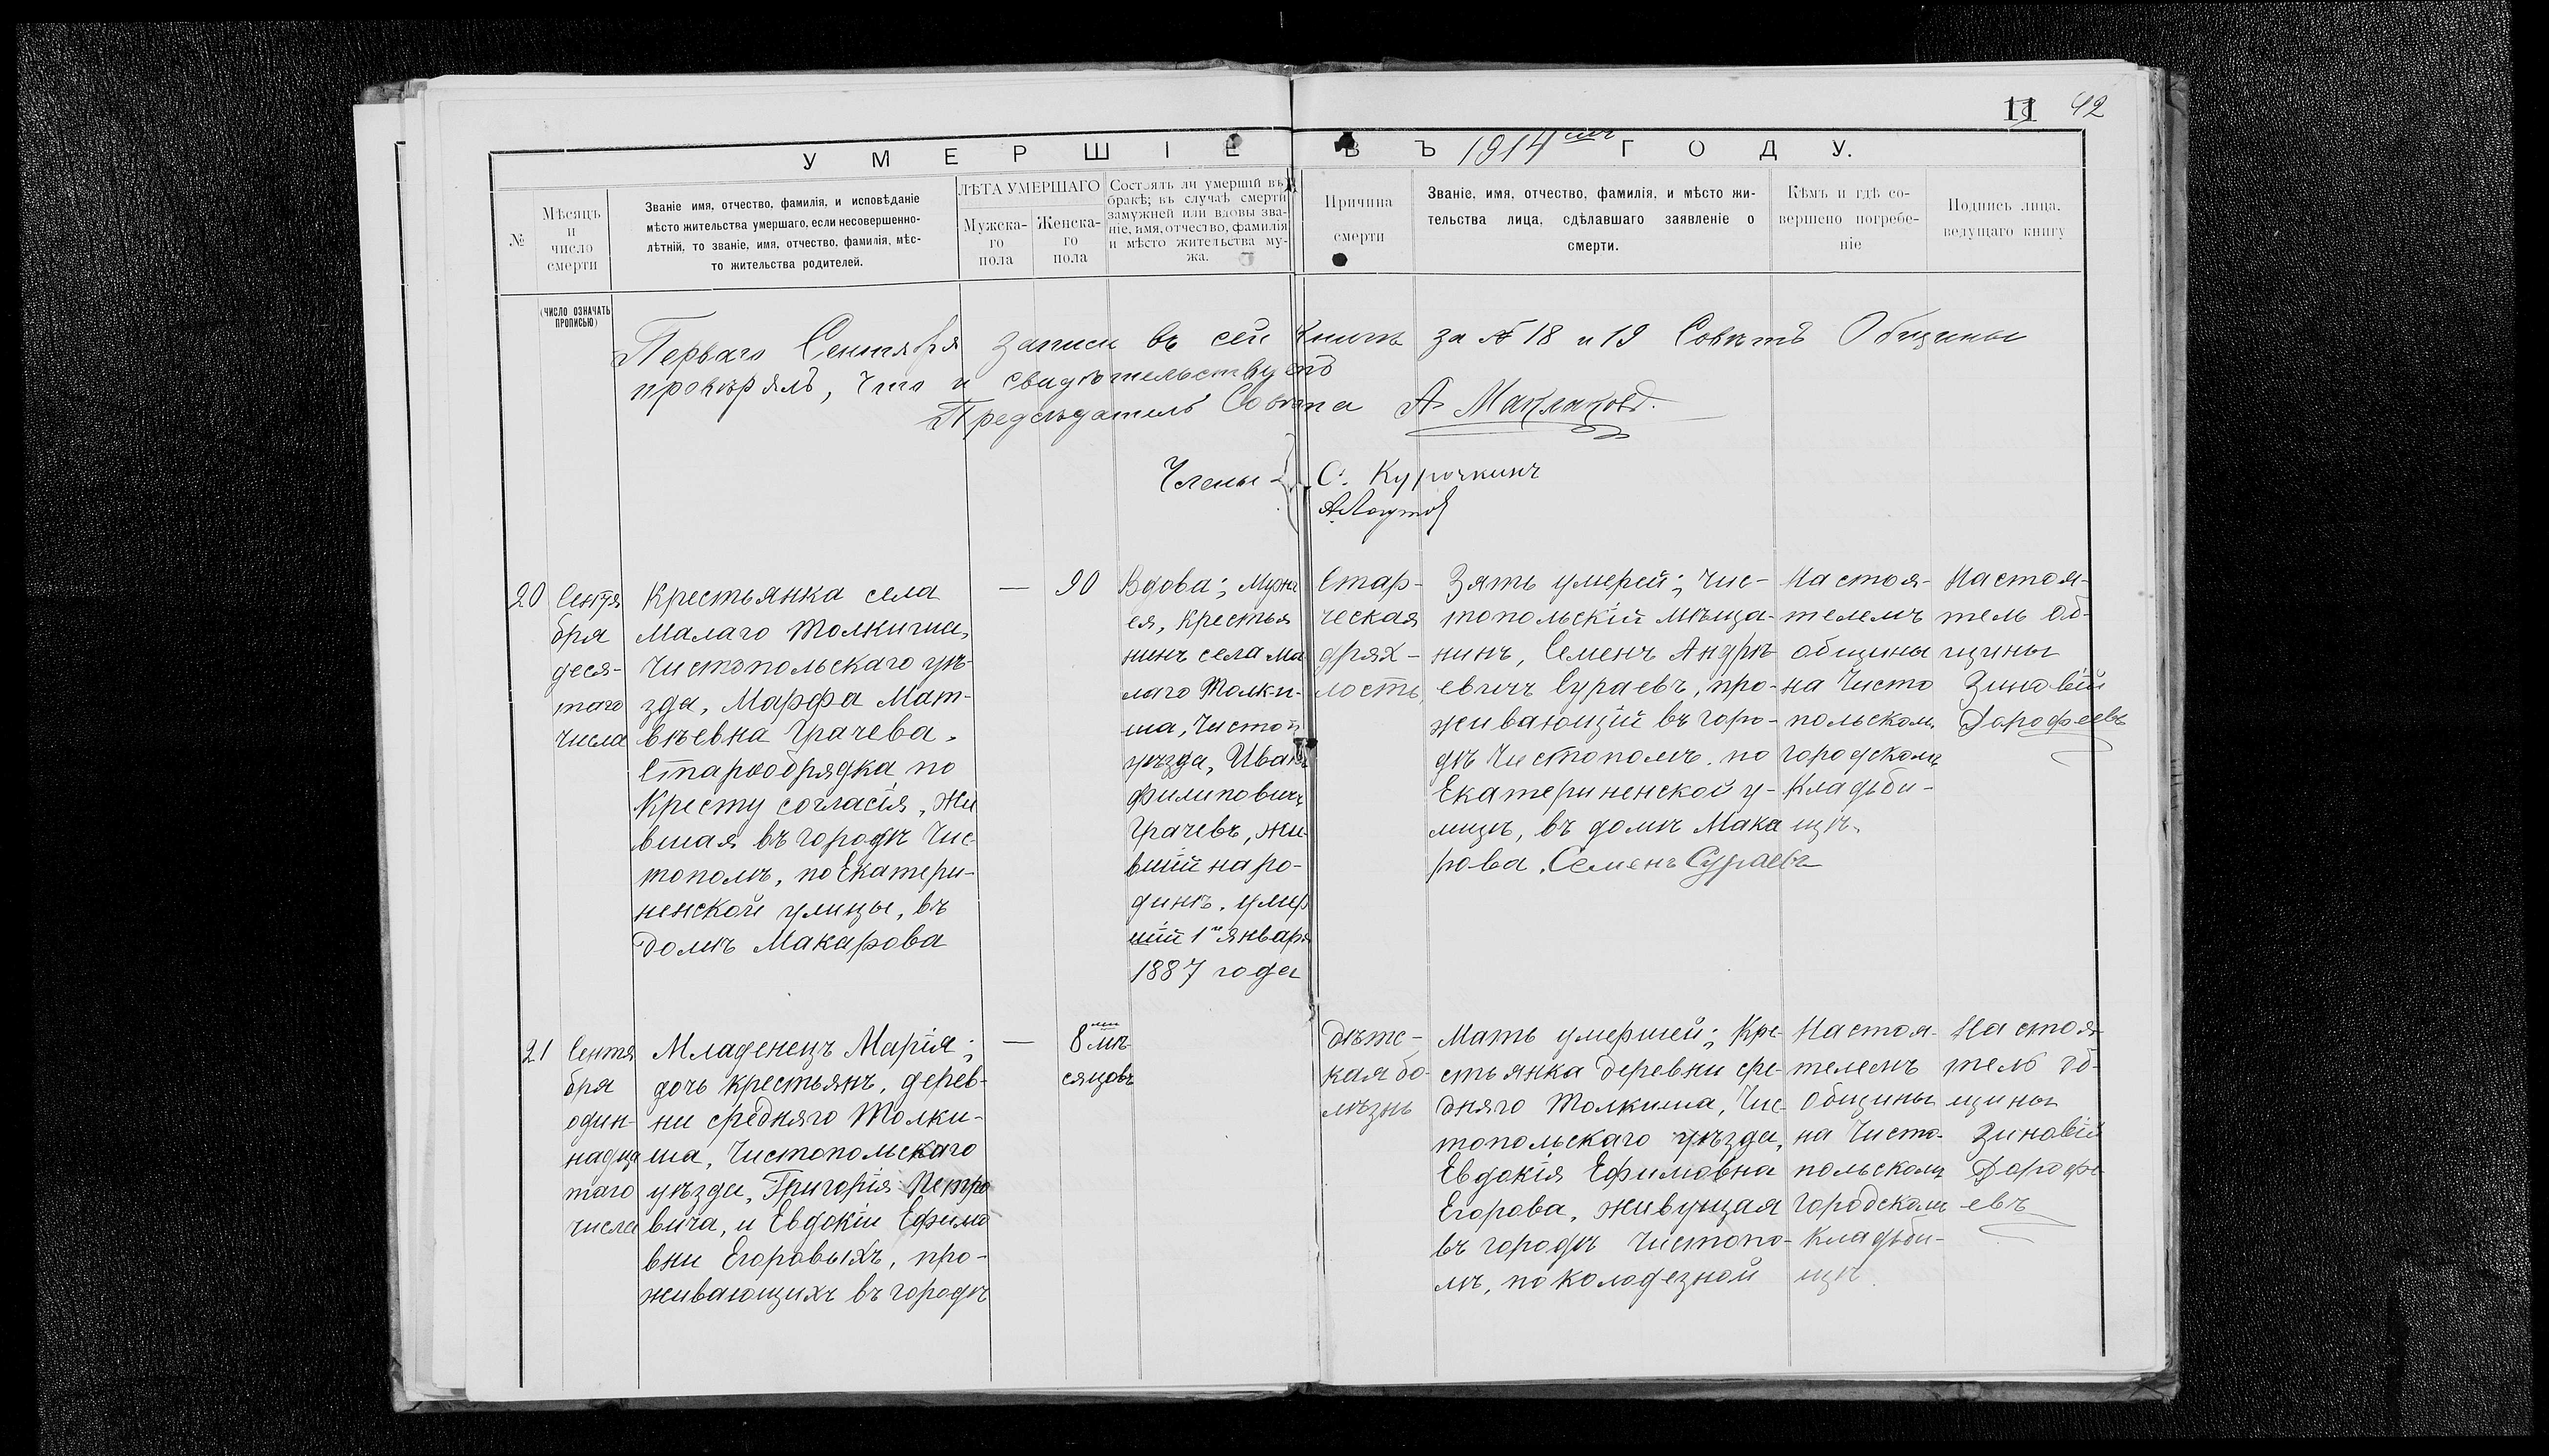 11 42
УМЕРШІЕ ВЪ 1914 ГОДУ.
№
Мѣсяцъ
и
число
смерти
Званіе имя, отчество, фамилія, и исповѣданіе
мѣсто жительства умершаго, если несовершенно-
лѣтній, то званіе, имя, отчество, фамилія, мѣс-
то жительства родителей.
ЛѢТА УМЕРШАГО
Мужска-
го
пола
Женска-
го
пола
Состоялъ ли умершій въ
бракѣ; въ случаѣ смерти
замужней или вдовы зва-
ніе, имя, отчество, фамилія
и мѣсто жительства му-
жа.
Причина
смерти
Званіе, имя, отчество, фамилія, и мѣсто жи-
тельства лица, сдѣлавшаго заявленіе о
смерти.
Кѣмъ и гдѣ со-
вершено погребе-
ніе
Подпись лица,
ведущаго книгу
(ЧИСЛО ОЗНАЧАТЬ
ПРОПИСЬЮ)
Перваго Сентября записи въ сей книгѣ за № 18 и 19 Совѣтъ Общины
провѣрялъ, что и свидѣтельствуетъ
Предсѣдатель Совѣта А. Маклаковъ.
Члены
С. Курочкинъ
20
Сентя
бря
деся-
таго
числа
Крестьянка села
Малаго Толкиша,
Чистопольскаго уѣ-
зда, Марфа Мат-
вѣевна Грачева.
Старообрядка по
Кресту согласія, жи
вшая въ городѣ Чис-
тополѣ, по Екатери-
ненской улицы, въ
домѣ Макарова
—
90
Вдова; Мужъ
ея, крестья
нинъ села Ма
лаго Толки-
ша, Чистоп
уѣзда, Иванъ
Филиповичъ
Грачевъ, жи-
вшій на ро-
динѣ. умер
шій 1го Января
1887 года
Стар-
ческая
дрях-
лость,
Зять умерей; Чис-
топольскій мѣща-
нинъ, Семенъ Андрѣ
евичъ Сураевъ, про-
живающій въ горо-
дѣ Чистополѣ. по
Екатериненской у-
лицѣ, въ домѣ Мака
рова. Семенъ Сураевъ
Настоя-
телемъ
общины
на Чисто
польском
городскомъ
Кладьби-
щѣ.
Настоя-
тель Об-
щины
Зиновій
Дорофеевъ
21
Сентя
бря
один-
надца
таго
числа
Младенецъ Марія;
дочь крестьянъ, дерев-
ни средняго Толки-
ша, Чистопольскаго
уѣзда, Григорія Петро
вича, и Евдокіи Ефимо
вни Егоровыхъ, про-
живающихъ въ городѣ
—
8ми мѣ-
сяцовъ
Дѣтс-
кая бо-
лѣзнь
Мать умершей; Кре-
стьянка деревни сре-
дняго Толкиша, Чис-
топольскаго уѣзда,
Евдокія Ефимовна
Егорова, живущая
въ городѣ Чистопо-
лѣ, по колодезной
Настоя-
телемъ
Общины
на Чисто-
польскомъ
Городскомъ
Кладьби-
щѣ.
Настоя-
тель Об-
щины
Зиновій
Дорофе
евъ